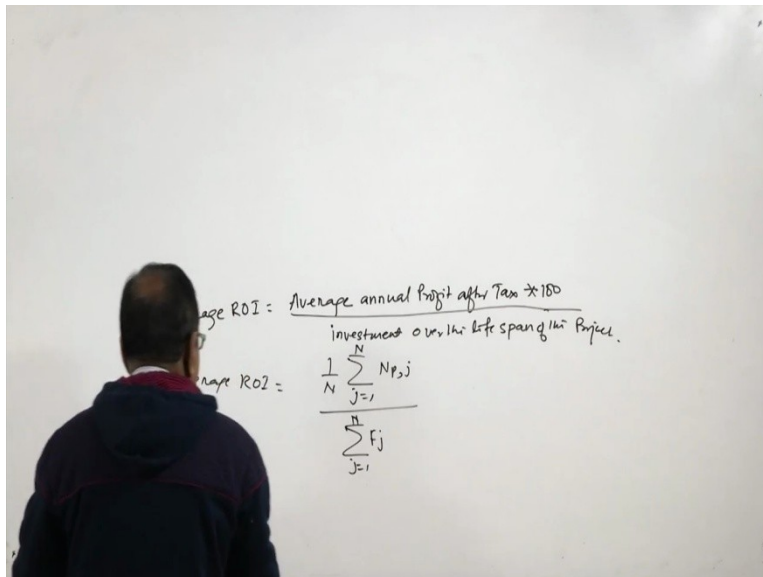 age ROI = Average annual Profit after Tax * 100
investment over the life span of the Project.
rage ROI =
1/N
N
∑
j=1
Np,j
N
∑
j=1
Fj